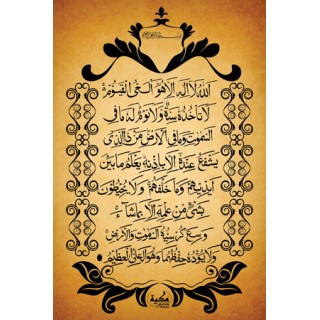 بسم الله الرحمن الرحيم
الله لا اله الا هو الحي القيوم
لا تأخذه سنة ولا نوم له ما في
السموات وما في الارض من ذا الذي
يشفع عنده الا باذنه يعلم ما بين
ايديهم وما خلفهم ولا يحيطون
بشيء من علمه الا بما شاء
وسع كرسيه السموات والارض
ولا يؤده حفظهما وهو العلي العظيم
مكية